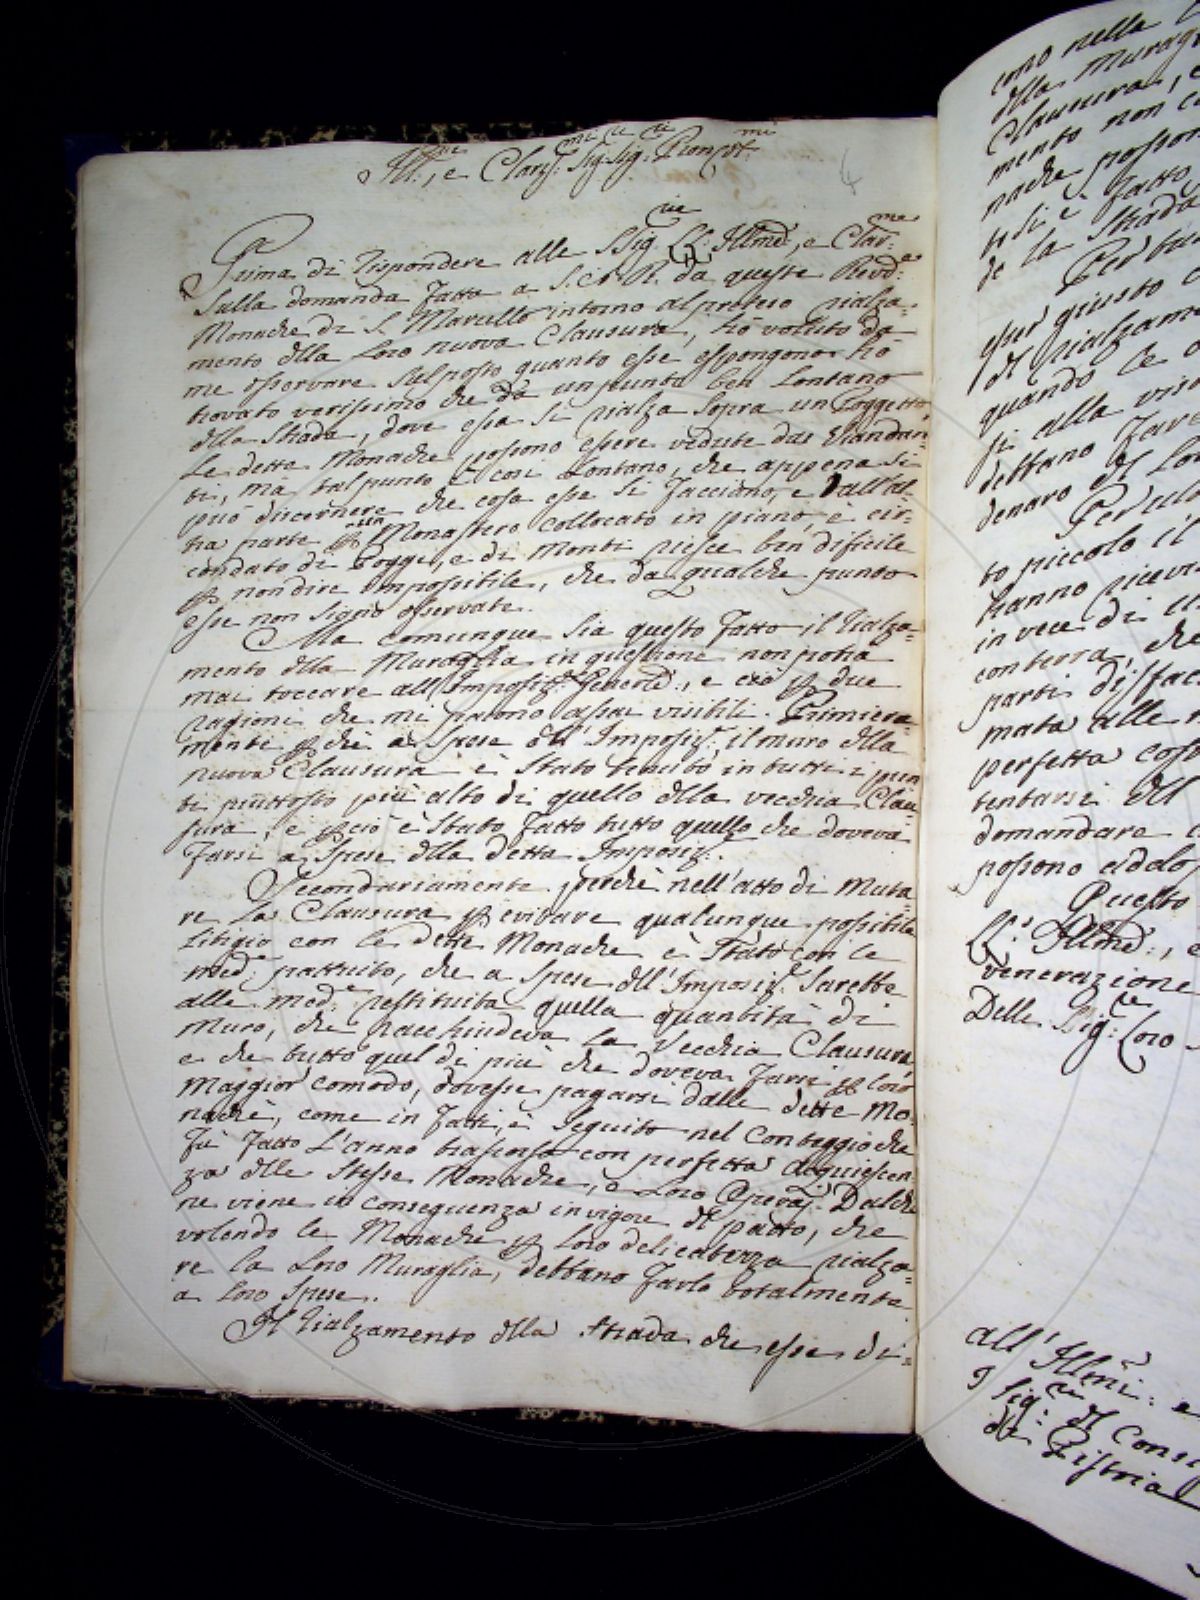 Ill.mi, e Clariss.mi Sig.ri Sig.ri Pron Pat.mi
4
Prima di rispondere alle SSig.rie LL: Illme, e Clar:me
Sulla domanda fatta a S.A.R. da queste Revd:e
Monache di S. Marcello intorno al preteso rialza-
mento dlla loro nuova Clausura, hò voluto da
me osservare sul posto quanto esse espongono. hò
trovato verissimo che da un punto ben lontano
dlla strada, dove essa si rialza sopra un Poggetto
Le dette Monache possono essere vedute dai Viandan-
ti, mà tal punto è così lontano, che appena si
può discernere che cosa esse si facciono, e dall'al-
tra parte p un Monastero collocato in piano, e cir-
condato di Poggi, e di Monti riesce ben dificile
p non dire impossibile, che da qualche punto
esse non siano osservate.
Ma comunque sia questo fatto il rialza-
mento dlla Muraglia in questione non potrà
mai toccare all'Imposiz: Generale, e ciò p due
ragioni che mi paiono assai visibili. Primiera-
mente p chè à spese dll'Imposiz: il muro dlla
nuova Clausura è stato tenuto in tutti i pun-
ti piuttosto più alto di quello dlla vecchia Clau-
sura, e p ciò è stato fatto tutto quello che doveva
farsi a spese dlla detta Imposiz:
Secondariamente perchè nell'atto di muta-
re la Clausura p evitare qualunque possibile
litigio con le dette Monache è stato con le
med:e pattuito, che a spese dll'Imposiz: sarebbe
alle med:e restituita quella quantità di
muro, che racchiudeva la Vecchia Clausura
e che tutto quel di più che doveva farsi p loro
maggior comodo, dovesse pagarsi dalle dette Mo-
nache, come in fatti, è seguito nel conteggio che
fu fatto l'anno trasporso con perfetta acquiescen-
za dlle stesse Monache, e loro Operaj. Dalche
ne viene in conseguenza in vigore dl patto, che
volendo le Monache p loro delicatezza rialza-
re la loro Muraglia, debbano farlo totalmente
a loro spese.
Il rialzamento dlla strada che esse di-
nella
dlla Muragl
Clausura, e
mento non
nache posson
si è fatto,
de la strada
Per
giusto
dl rialzam
quando le
si alla
debbano far
denaro dl
Per
to piccolo il
hanno ricev
in vece di
con terra, che
parti disfac
mata alle
perfetta cos
tentarsi dl
domandare
possono
Questo
LL: Illme:, e
venerazione
Delle Sig:rie Loro
all' Illmi: e
Sig:ri dl Cons
di Pistoia